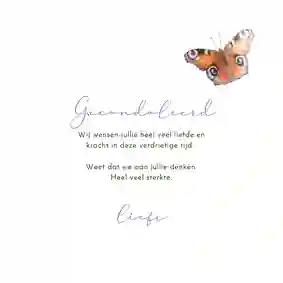 Gecondoleerd
Wij wensen jullie heel veel liefde en
kracht in deze verdrietige tijd.
Weet dat we aan jullie denken.
Heel veel sterkte,
liefs